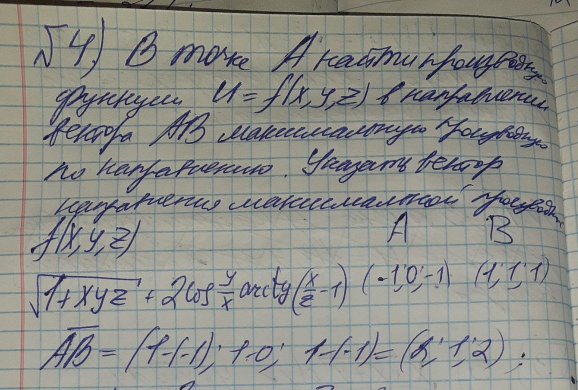 №4) В точке A найти производную
функции U = f(x,y,z) в направлении
вектора AB максимальную производную
по направлению. Указать вектор
направления максимальной производн
f(x,y,z) A B
√(1+xyz) + 2cos y/x arctg(x/z - 1) (-1,0,-1) (1,1,1)
AB = (1-(-1); 1-0; 1-(-1)) = (2; 1; 2);